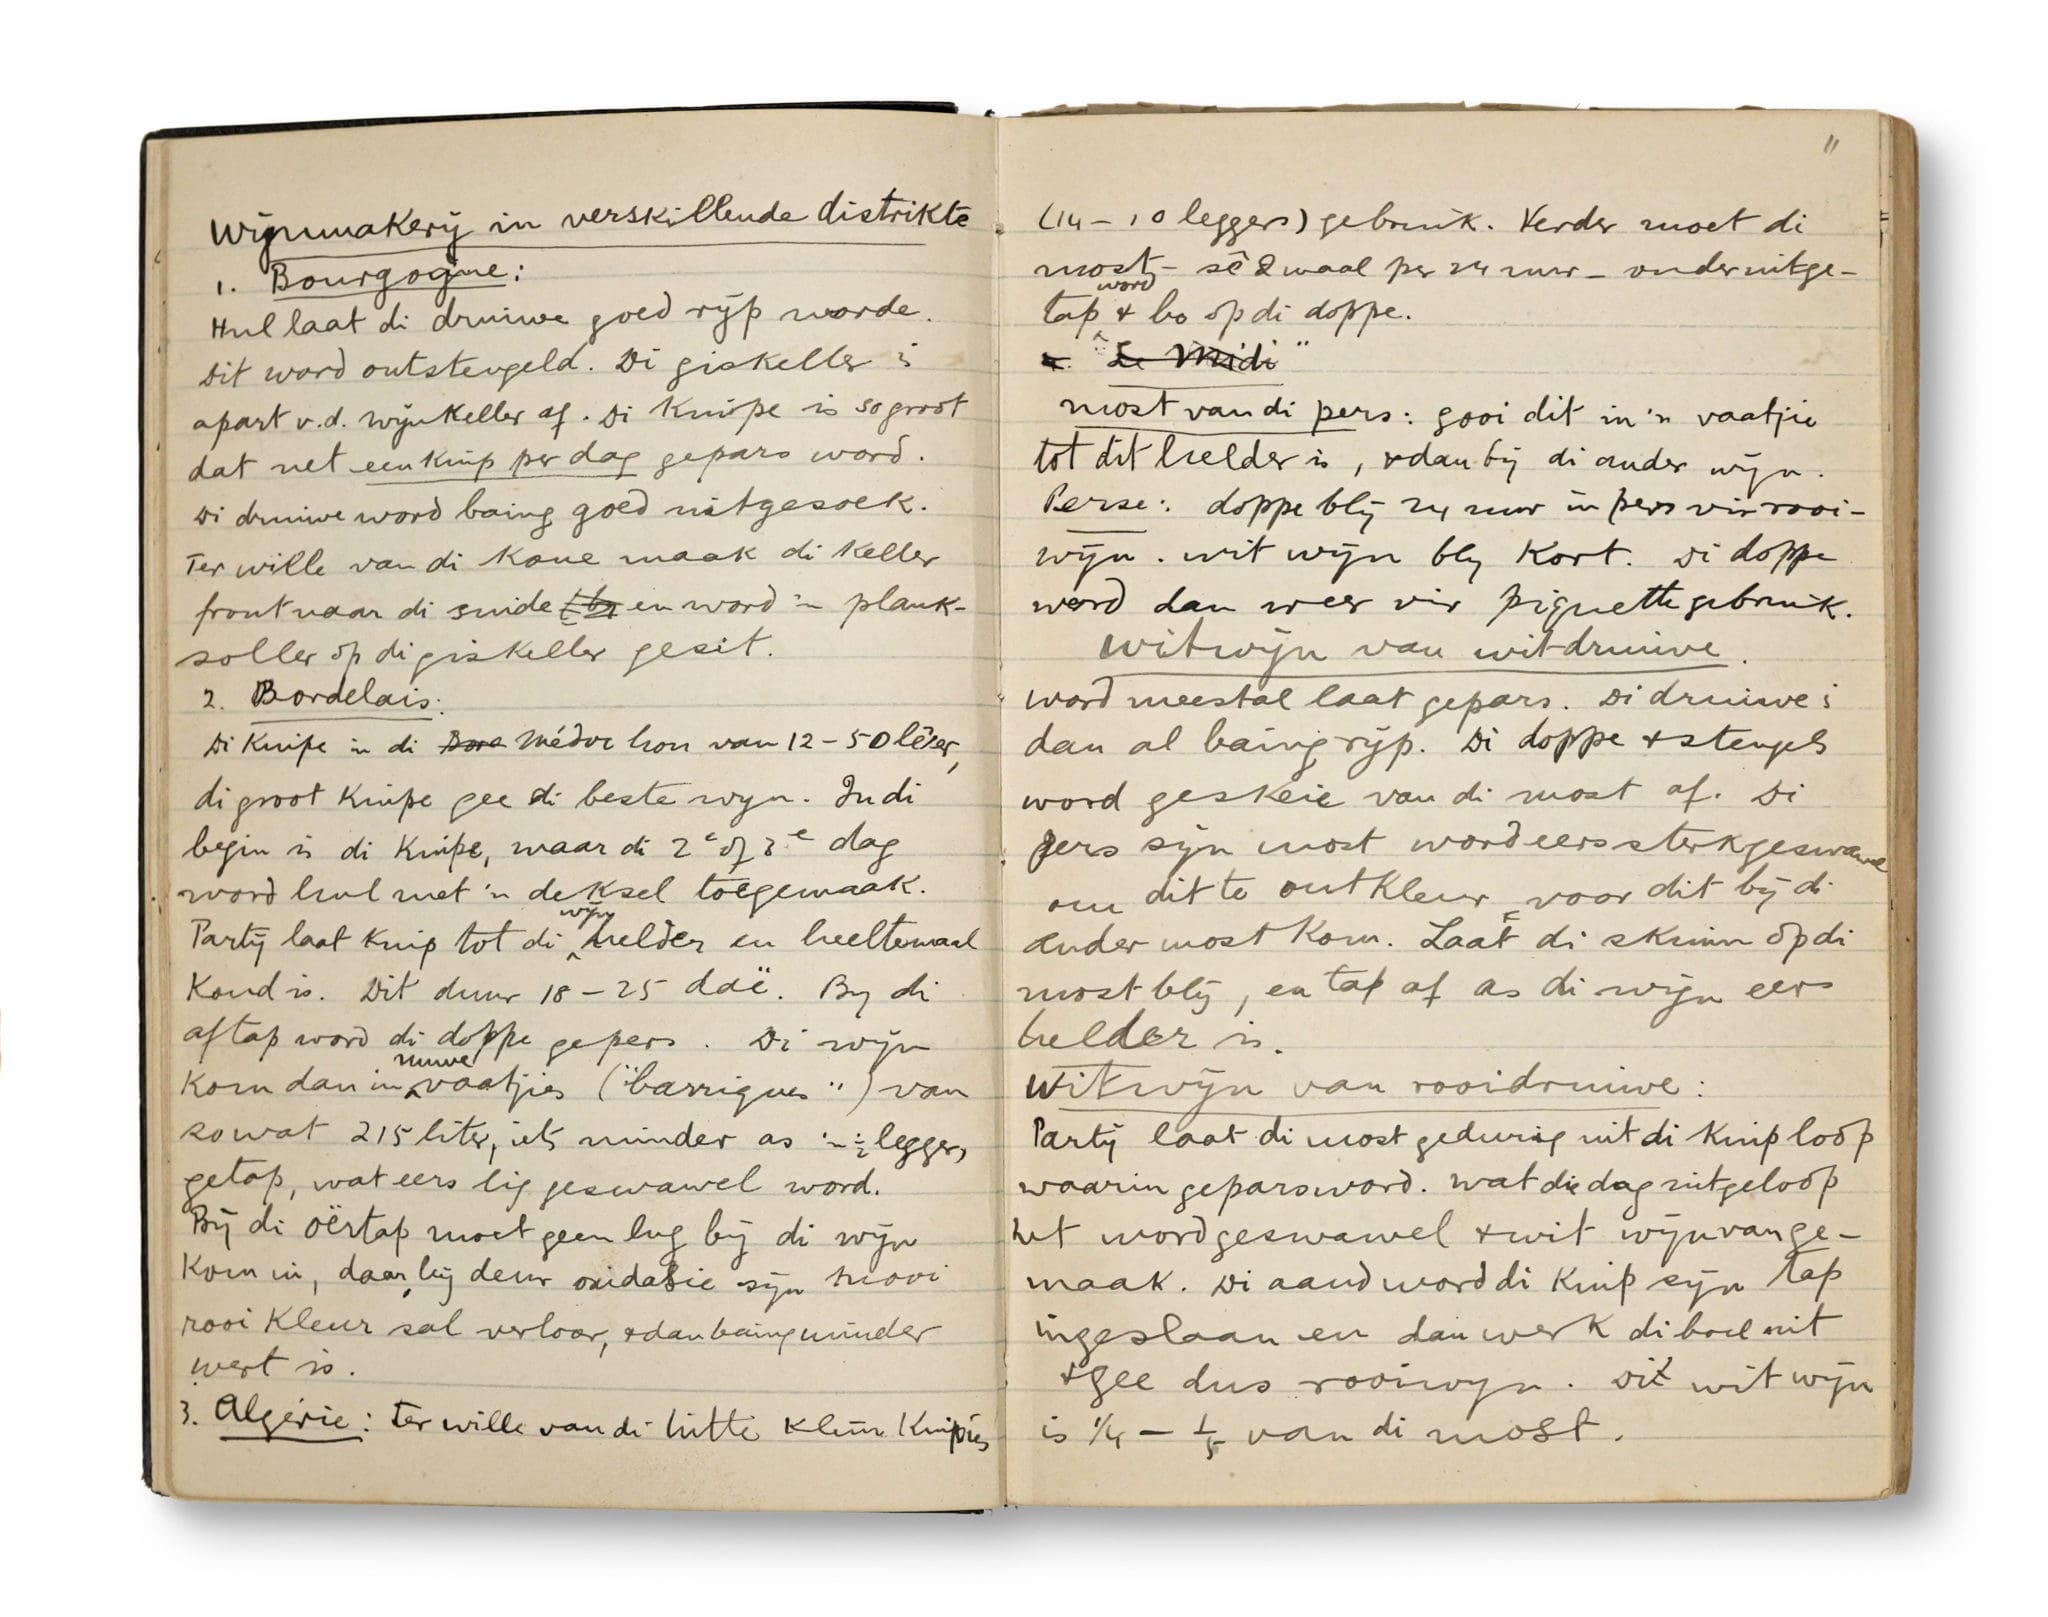 Wÿnmakerÿ in verskillende distrikte
1. Bourgogne:
Hul laat di druiwe goed rÿp worde.
Dit word ontstengeld. Di giskeller i
apart v.d. wÿnkeller af. Di Kuipe is so groot
dat net een kuip per dag gepars word.
Di druiwe word baing goed uitgesoek.
Ter wille van di Koue maak di Keller
front naar di suide en word 'n plank-
soller op di giskeller gesit.
2. Bordelais:
Di Kuipe in di Bore Médoc hou van 12 – 50 lêer,
di groot Kuipe gee di beste wyn. In di
begin is di Kuipe, maar di 2e of 3e dag
word hul met 'n deksel toegemaak.
Partÿ laat Kuip tot di wÿn helder en heeltemaal
Koud is. Dit duur 18 – 25 daë. By di
aftap word di doppe gepers. Di wÿn
Kom dan in nuwe vaatjies ("barriques") van
sowat 215 liter, iets minder as 'n ½ legger,
getap, wat eers lig geswawel word.
Bÿ di oërtap moet geen lug bÿ di wÿn
Kom ni, daar hÿ deur oxidasie sÿn mooi
rooi Kleur sal verloor, & dan baing minder
wert is.
3. Algérie: ter wille van di hitte klein Kuipies
11
(14 – 10 leggers) gebruik. Verder moet di
most – sê 2 maal per 24 uur – onder uitge-
tap word & bo op di doppe.
4. "Le Midi"
Most van di pers: gooi dit in 'n vaatjie
tot dit helder is, & dan bÿ di ander wÿn.
Perse: doppe blÿ 24 uur in pers vir rooi-
wÿn. wit wÿn bly Kort. Di doppe
word dan weer vir piquette gebruik.
Witwÿn van witdruiwe.
word meestal laat gepars. Di druiwe i
dan al baing rÿp. Di doppe & stengels
word geskeie van di most af. Di
pers sÿn most word eers sterk geswawel
om dit te ontkleur voor dit bÿ di
ander most Kom. Laat di skuim op di
most blÿ, en tap af as di wÿn eers
helder is.
Witwÿn van rooidruiwe:
Partÿ laat di most gedurig uit di Kuip loop
waarin gepars word. Wat die dag uitgeloop
het word geswawel & wit wÿn van ge-
maak. Di aand word di Kuip sÿn tap
ingeslaan en dan werk di boel uit
& gee dus rooiwyn. Dit wit wÿn
is ¼ – 1/5 van di most.